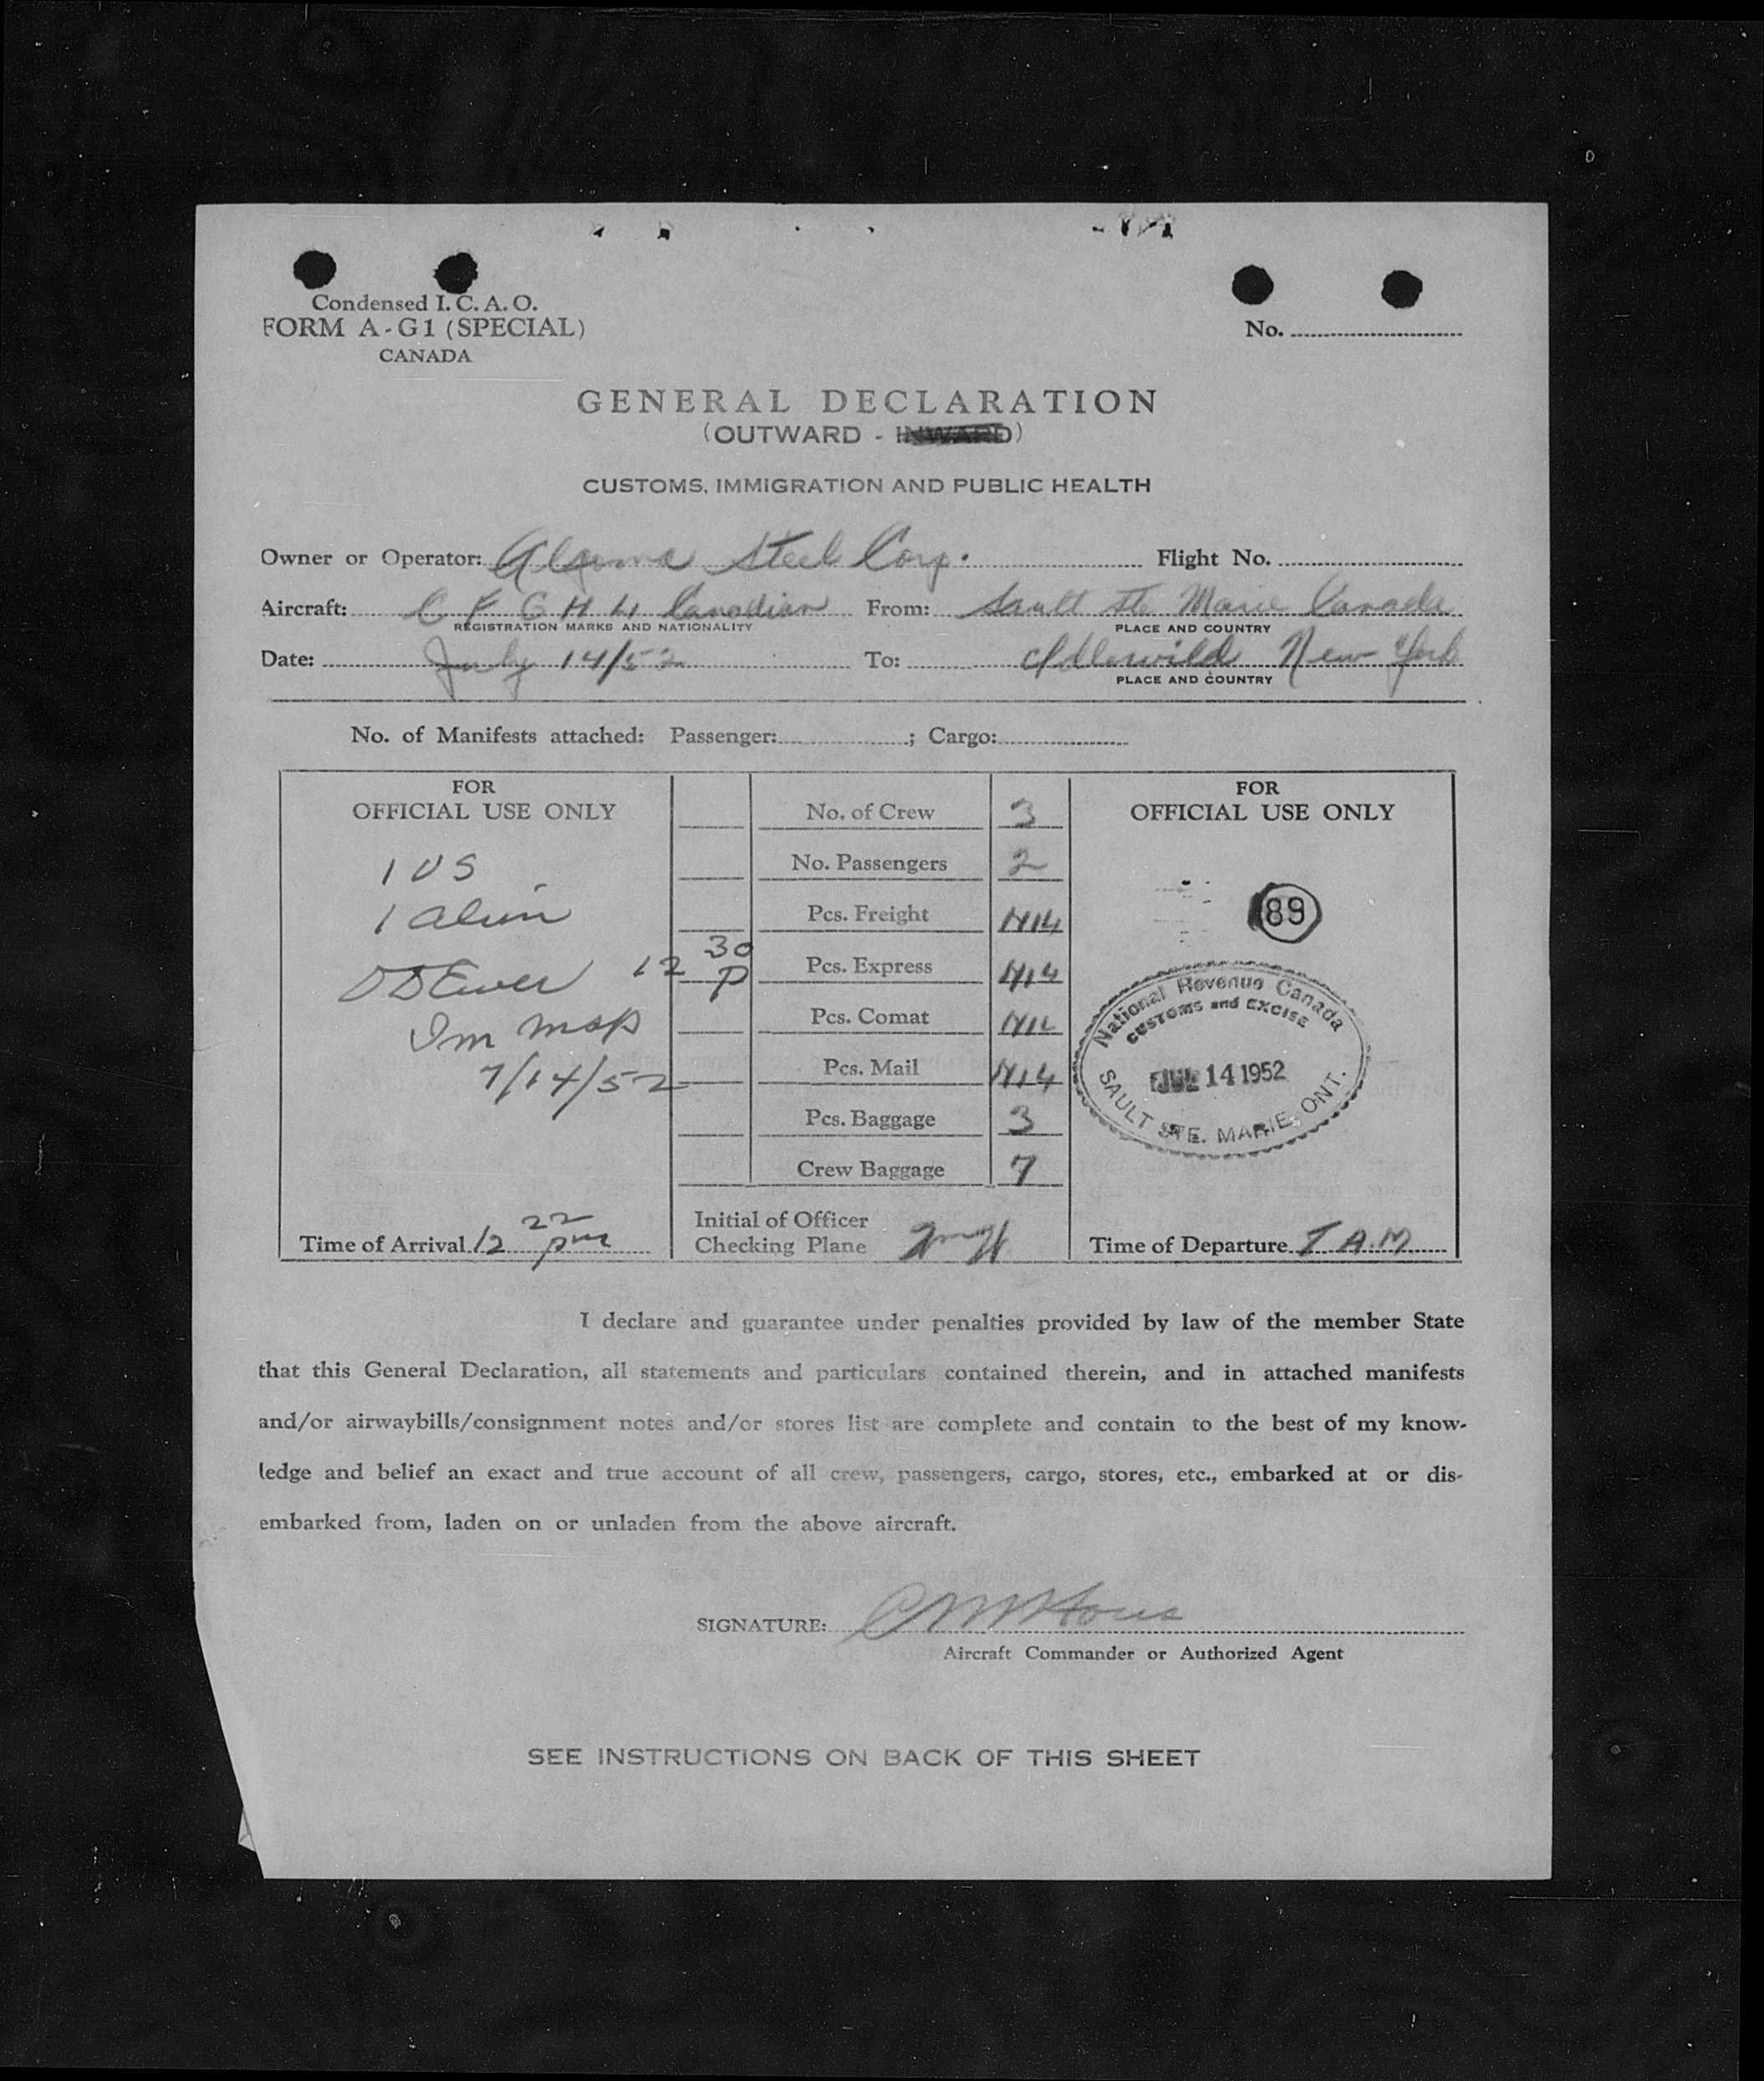 Condensed I. C. A. O.
FORM A-G1 (SPECIAL)
CANADA
No.
GENERAL DECLARATION
(OUTWARD - INWARD)
CUSTOMS, IMMIGRATION AND PUBLIC HEALTH
Owner or Operator: Algoma Steel Corp. Flight No.
Aircraft: C F G H Canadian From: Sault Ste Marie Canada
REGISTRATION MARKS AND NATIONALITY PLACE AND COUNTRY
Date: July 14/52 To: Idlewild New York
PLACE AND COUNTRY
No. of Manifests attached: Passenger: ; Cargo:
FOR
OFFICIAL USE ONLY
1 US
1 alien
12 30 P
Im Insp
7/14/52
Time of Arrival 12 22 pm
No. of Crew 3
No. Passengers 2
Pcs. Freight Nil
Pcs. Express Nil
Pcs. Comat Nil
Pcs. Mail Nil
Pcs. Baggage 3
Crew Baggage 7
Initial of Officer
Checking Plane
FOR
OFFICIAL USE ONLY
89
National Revenue Canada
CUSTOMS and EXCISE
JUL 14 1952
SAULT STE. MARIE, ONT.
Time of Departure 7 A.M
I declare and guarantee under penalties provided by law of the member State
that this General Declaration, all statements and particulars contained therein, and in attached manifests
and/or airwaybills/consignment notes and/or stores list are complete and contain to the best of my know-
ledge and belief an exact and true account of all crew, passengers, cargo, stores, etc., embarked at or dis-
embarked from, laden on or unladen from the above aircraft.
SIGNATURE:
Aircraft Commander or Authorized Agent
SEE INSTRUCTIONS ON BACK OF THIS SHEET